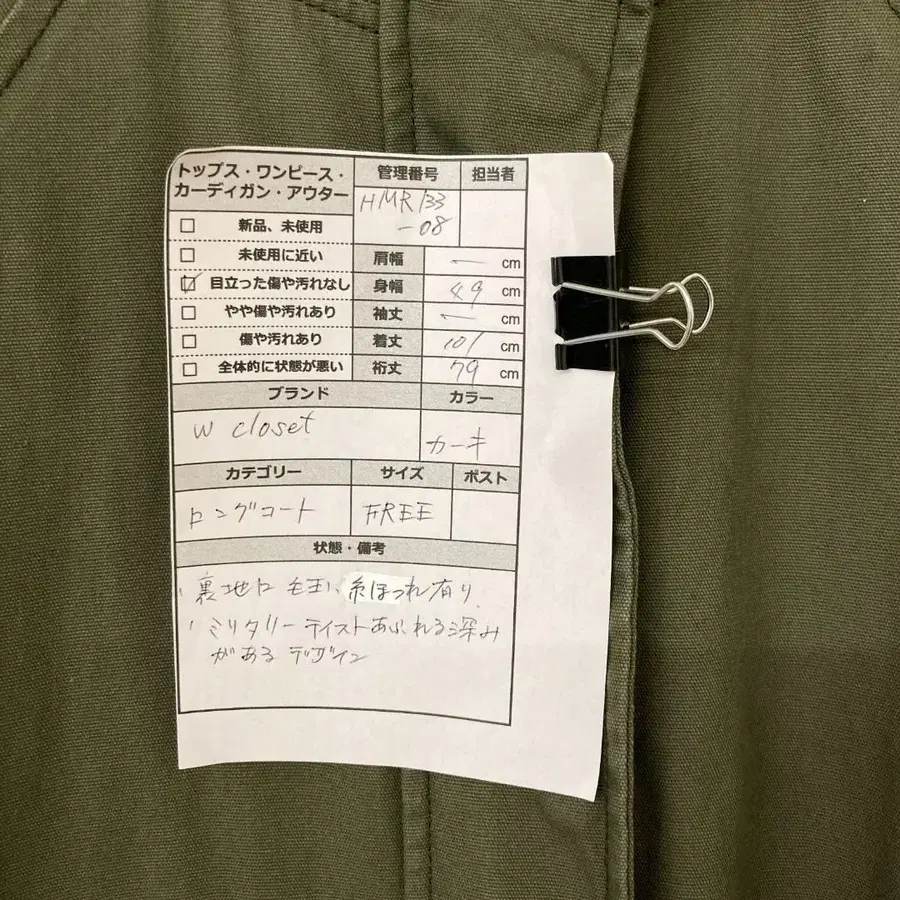 トップス・ワンピース・
カーディガン・アウター
管理番号
担当者
HMR133
-08
□ 新品、未使用
□ 未使用に近い
☑ 目立った傷や汚れなし
□ やや傷や汚れあり
□ 傷や汚れあり
□ 全体的に状態が悪い
肩幅 ー cm
身幅 49 cm
袖丈 ー cm
着丈 101 cm
裄丈 79 cm
ブランド
カラー
w closet
カーキ
カテゴリー
サイズ
ポスト
ロングコート
FREE
状態・備考
、裏地に毛玉、糸ほつれ有り
、ミリタリーテイストあふれる深み
がある デザイン